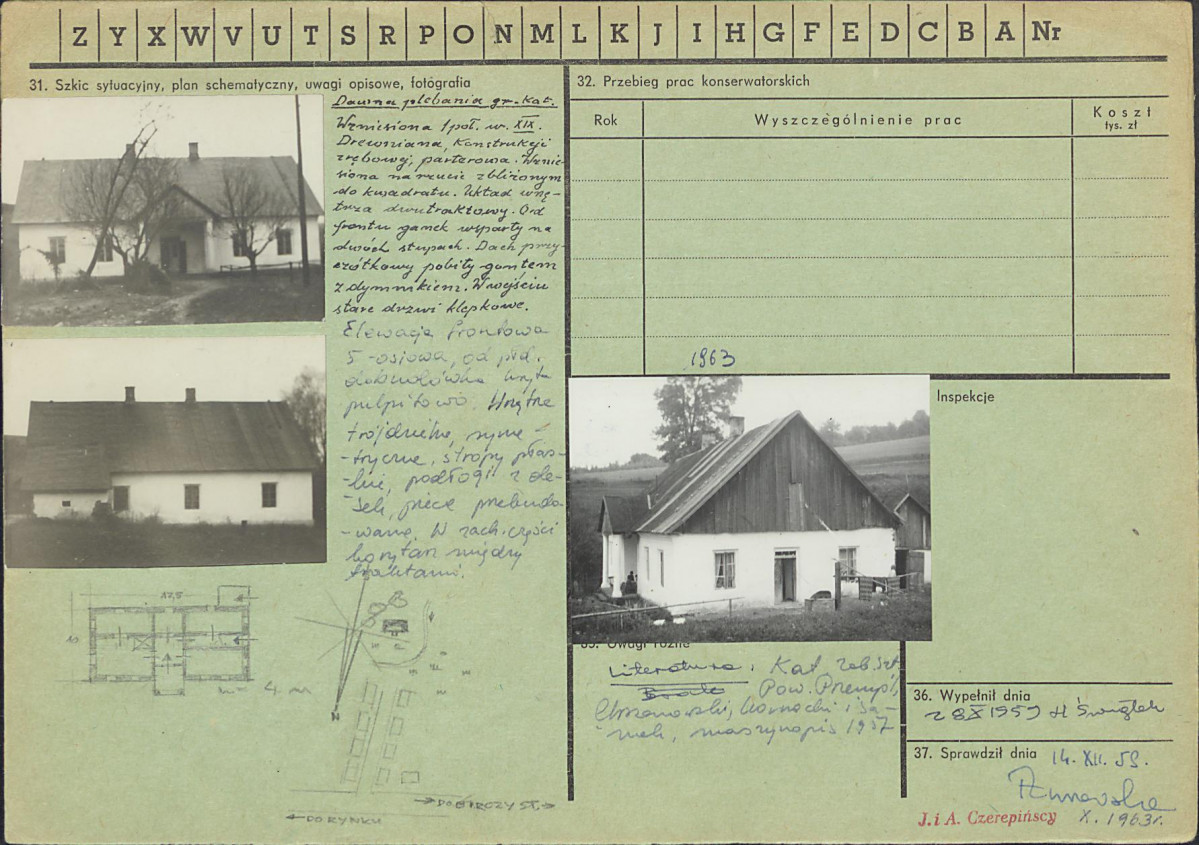 Z Y X W V U T S R P O N M L K J I H G F E D C B A Nr
31. Szkic sytuacyjny, plan schematyczny, uwagi opisowe, fotografia
Dawna plebania gr.-kat.
Wzniesiona 1 poł. w. XIX.
Drewniana, konstrukcji
zrębowej, parterowa. Wznie-
siona na rzucie zbliżonym
do kwadratu. Układ wnę-
trza dwutraktowy. Od
frontu ganek wsparty na
dwóch słupach. Dach przy-
czółkowy pobity gontem
z dymnikiem. W wejściu
stare drzwi klepkowe.
Elewacja frontowa
5-osiowa, od płd.
dobudówka kryta
pulpitowo. Wnętrze
trójdzielne, syme-
-tryczne, stropy płas-
-kie, podłogi z de-
-sek, piece przebudo-
-wane. W zach. części
korytarz między
traktami.
12,5
10
4 m
N
DO BIRCZY ST.
DO RYNKU
32. Przebieg prac konserwatorskich
Rok
Wyszczególnienie prac
Koszt
tys. zł
1963
Inspekcje
Uwagi różne
Literatura: Kat. zab. szt.
Pow. Przemyśl,
maszynopis 1957
36. Wypełnił dnia
z 8 X 1959 H Świątek
37. Sprawdził dnia 14. XII. 59.
J. i A. Czerepińscy X. 1963r.